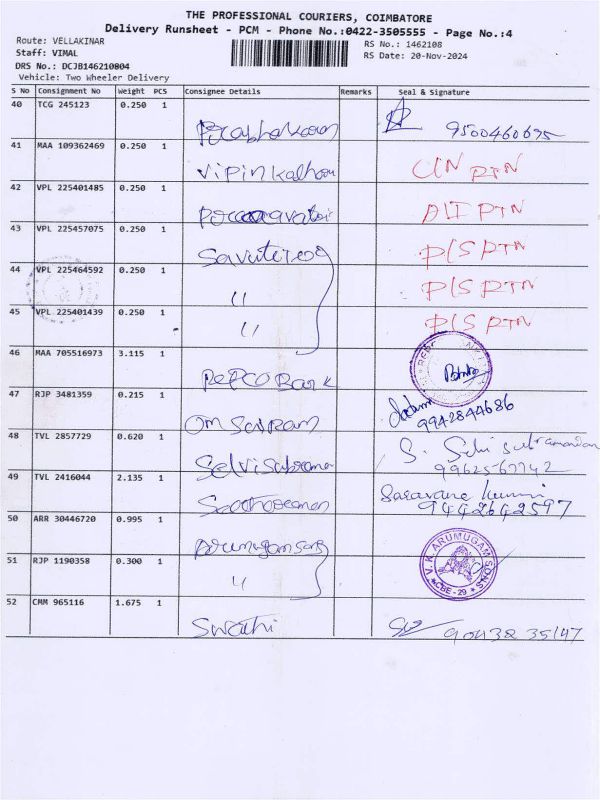 THE PROFESSIONAL COURIERS, COIMBATORE
Delivery Runsheet - PCM - Phone No.:0422-3505555 - Page No.:4
Route: VELLAKINAR
RS No.: 1462108
Staff: VIMAL
RS Date: 20-Nov-2024
DRS No.: DCJB146210804
Vehicle: Two Wheeler Delivery
S No Consignment No Weight PCS Consignee Details Remarks Seal & Signature
40 TCG 245123 0.250 1
Prabhakaran 9500460695
41 MAA 109362469 0.250 1
Vipin
42 VPL 225401485 0.250 1
43 VPL 225457075 0.250 1
P/S PTN
44 VPL 225464592 0.250 1
" P/S PTN
45 VPL 225401439 0.250 1
" P/S PTN
46 MAA 705516973 3.115 1
REPCO Bank
47 RJP 3481359 0.215 1
Om Sairam 9942844686
48 TVL 2857729 0.620 1
Selvi
49 TVL 2416044 2.135 1
9442642597
50 ARR 30446720 0.995 1
Arumugam Sons
V. K. ARUMUGAM SONS
CBE - 29
51 RJP 1190358 0.300 1
"
52 CMM 965116 1.675 1
Swathi 90438 35147